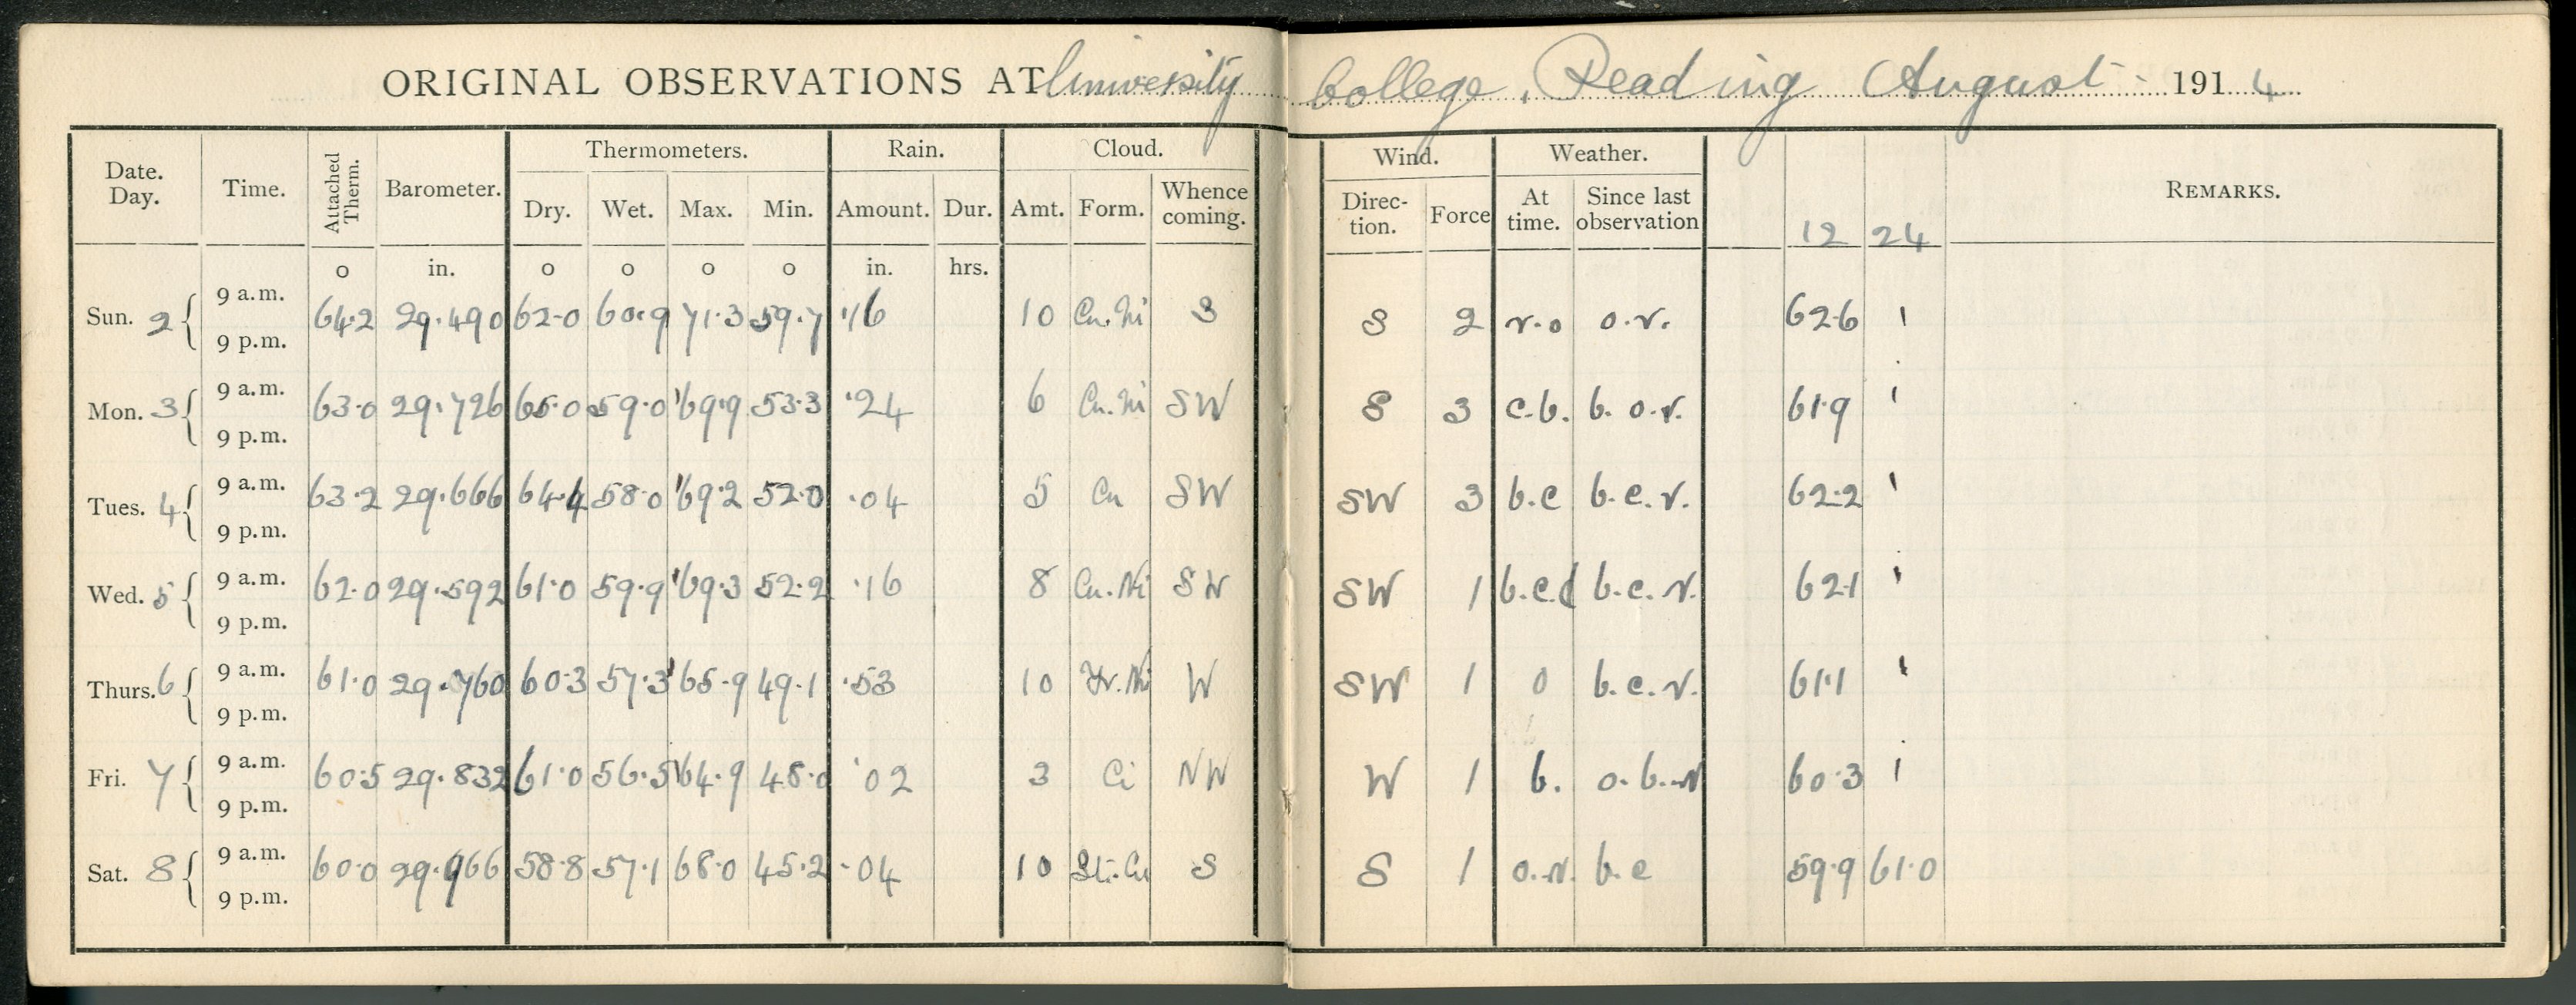 ORIGINAL OBSERVATIONS AT University College, Reading August 1914
Thermometers. Rain. Cloud. Wind. Weather.
Date. Day. Time. Attached Therm. Barometer. Dry. Wet. Max. Min. Amount. Dur. Amt. Form. Whence coming. Direc-tion. Force At time. Since last observation 12 24 REMARKS.
o in. o o o o in. hrs.
9 a.m.
Sun. 2 64.2 29.490 62.0 60.9 71.3 59.7 .16 10 Cu.Ni S S 2 r.o o.r. 62.6 '
9 p.m.
9 a.m.
Mon. 3 63.0 29.726 65.0 59.0 69.9 53.3 .24 6 Cu.Ni SW S 3 c.b. b.o.r. 61.9 '
9 p.m.
9 a.m.
Tues. 4 63.2 29.666 64.4 58.0 69.2 52.0 .04 5 Cu SW SW 3 b.c b.c.r. 62.2 '
9 p.m.
9 a.m.
Wed. 5 62.0 29.592 61.0 59.9 69.3 52.2 .16 8 Cu.Ni SW SW 1 b.c.d b.c.r. 62.1 '
9 p.m.
9 a.m.
Thurs. 6 61.0 29.760 60.3 57.3 65.9 49.1 .53 10 Fr.Ni W SW 1 o b.c.r. 61.1 '
9 p.m.
9 a.m.
Fri. 7 60.5 29.832 61.0 56.5 64.9 48.0 .02 3 Ci NW W 1 b. o.b.r 60.3 '
9 p.m.
9 a.m.
Sat. 8 60.0 29.966 58.8 57.1 68.0 45.2 .04 10 St.Cu S S 1 o.r. b.c 59.9 61.0
9 p.m.